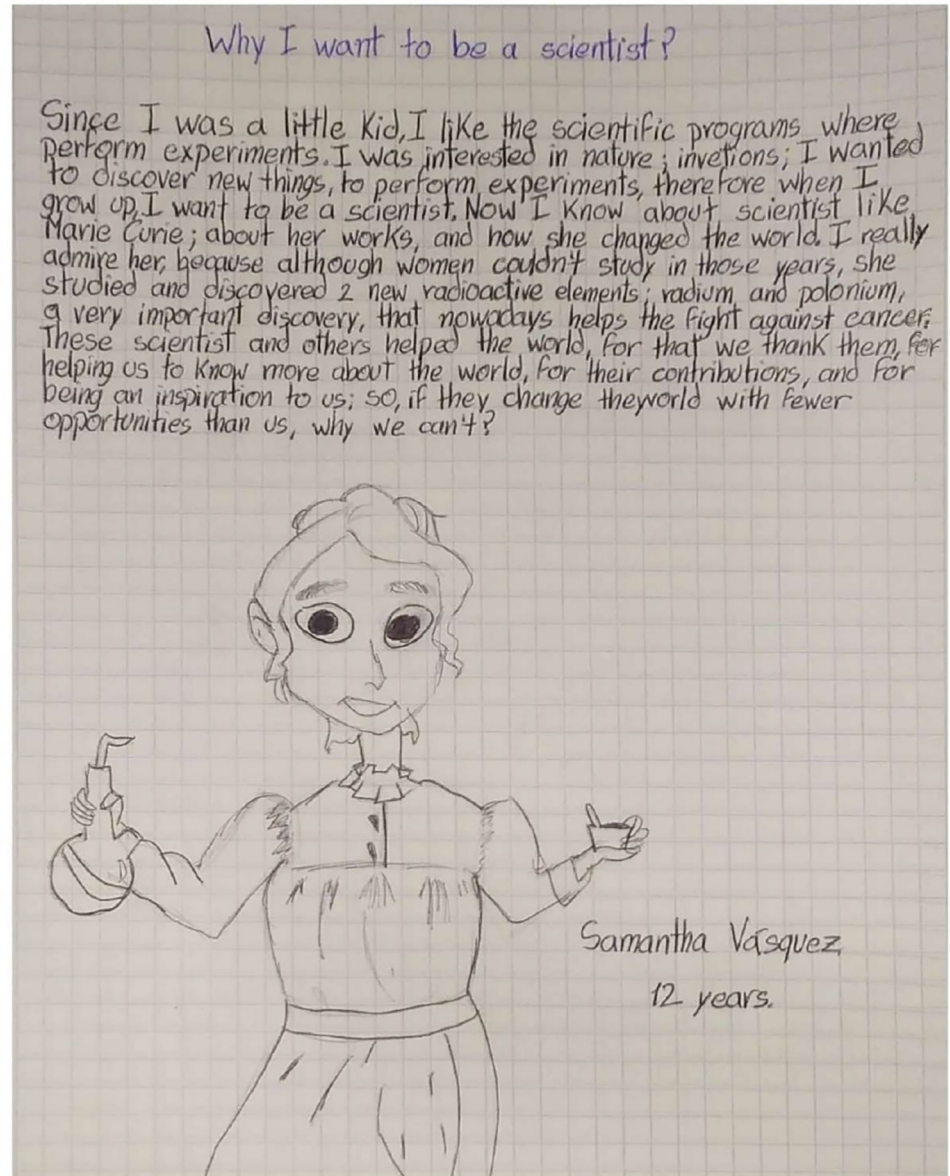 Why I want to be a scientist?
Since I was a little Kid, I like the scientific programs where
perform experiments. I was interested in nature; invetions; I wanted
to discover new things, to perform experiments, therefore when I
grow up, I want to be a scientist. Now I know about scientist like
Marie Curie; about her works, and how she changed the world. I really
admire her, because although women couldn't study in those years, she
studied and discovered 2 new radioactive elements; radium and polonium,
a very important discovery, that nowadays helps the fight against cancer.
These scientist and others helped the world, for that we thank them, for
helping us to know more about the world, for their contributions, and for
being an inspiration to us; so, if they change theyworld with fewer
opportunities than us, why we can't?
Samantha Vásquez
12 years.